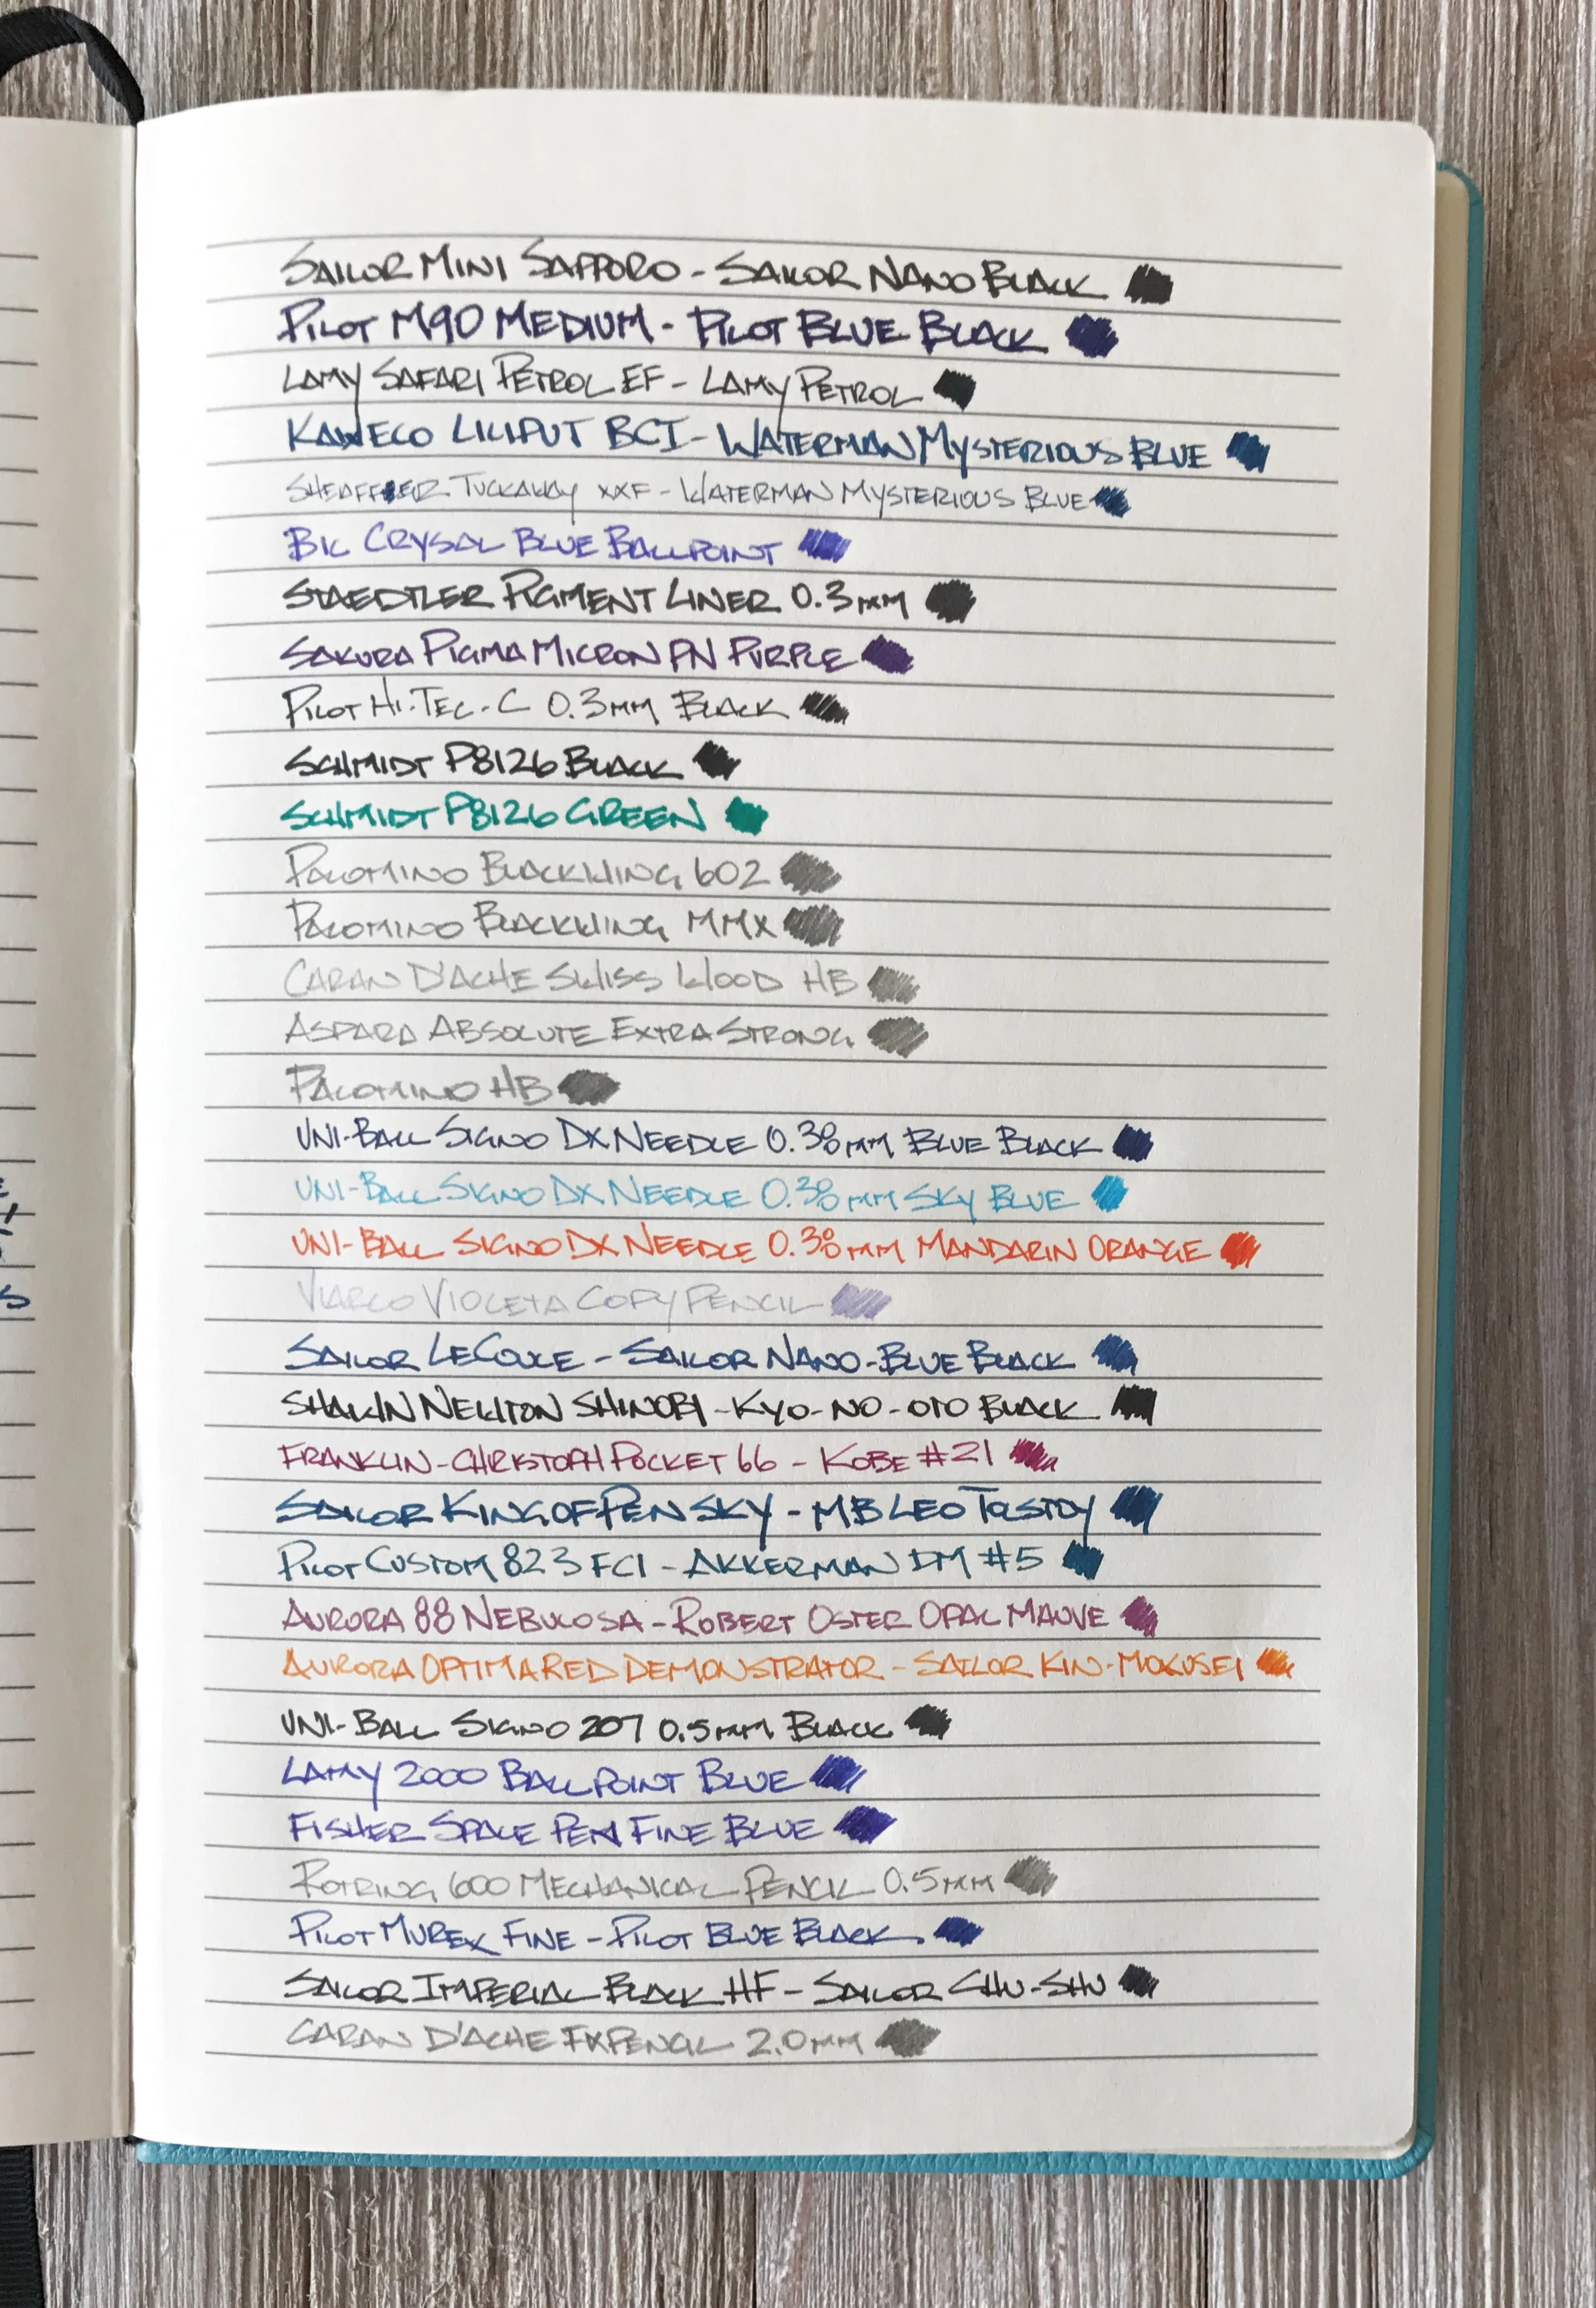 SAILOR MINI SAPPORO - SAILOR NANO BLACK
PILOT M90 MEDIUM - PILOT BLUE BLACK
LAMY SAFARI PETROL EF - LAMY PETROL
KAWECO LILIPUT BCI - WATERMAN MYSTERIOUS BLUE
SHEAFFER TUCKAWAY XXF - WATERMAN MYSTERIOUS BLUE
BIC CRYSAL BLUE BALLPOINT
STAEDTLER PIGMENT LINER 0.3MM
SAKURA PIGMA MICRON PN PURPLE
PILOT HI-TEC-C 0.3MM BLACK
SCHMIDT P8126 BLACK
SCHMIDT P8126 GREEN
PALOMINO BLACKWING 602
PALOMINO BLACKWING MMX
CARAN D'ACHE SWISS WOOD HB
ASPARA ABSOLUTE EXTRA STRONG
PALOMINO HB
UNI-BALL SIGNO DX NEEDLE 0.38MM BLUE BLACK
UNI-BALL SIGNO DX NEEDLE 0.38MM SKY BLUE
UNI-BALL SIGNO DX NEEDLE 0.38MM MANDARIN ORANGE
VIARCO VIOLETA COPY PENCIL
SAILOR LECOULE - SAILOR NANO-BLUE BLACK
SHAWN NEWTON SHINOBI - KYO-NO-OTO BLACK
FRANKLIN-CHRISTOPH POCKET 66 - KOBE #21
SAILOR KING OF PEN SKY - MB LEO TOLSTOY
PILOT CUSTOM 823 FCI - AKKERMAN DM #5
AURORA 88 NEBULOSA - ROBERT OSTER OPAL MAUVE
AURORA OPTIMA RED DEMONSTRATOR - SAILOR KIN-MOKUSEI
UNI-BALL SIGNO 207 0.5MM BLACK
LAMY 2000 BALLPOINT BLUE
FISHER SPACE PEN FINE BLUE
ROTRING 600 MECHANICAL PENCIL 0.5MM
PILOT MUREX FINE - PILOT BLUE BLACK
SAILOR IMPERIAL BLACK HF - SAILOR CHU-SHU
CARAN D'ACHE FXPENCIL 2.0MM